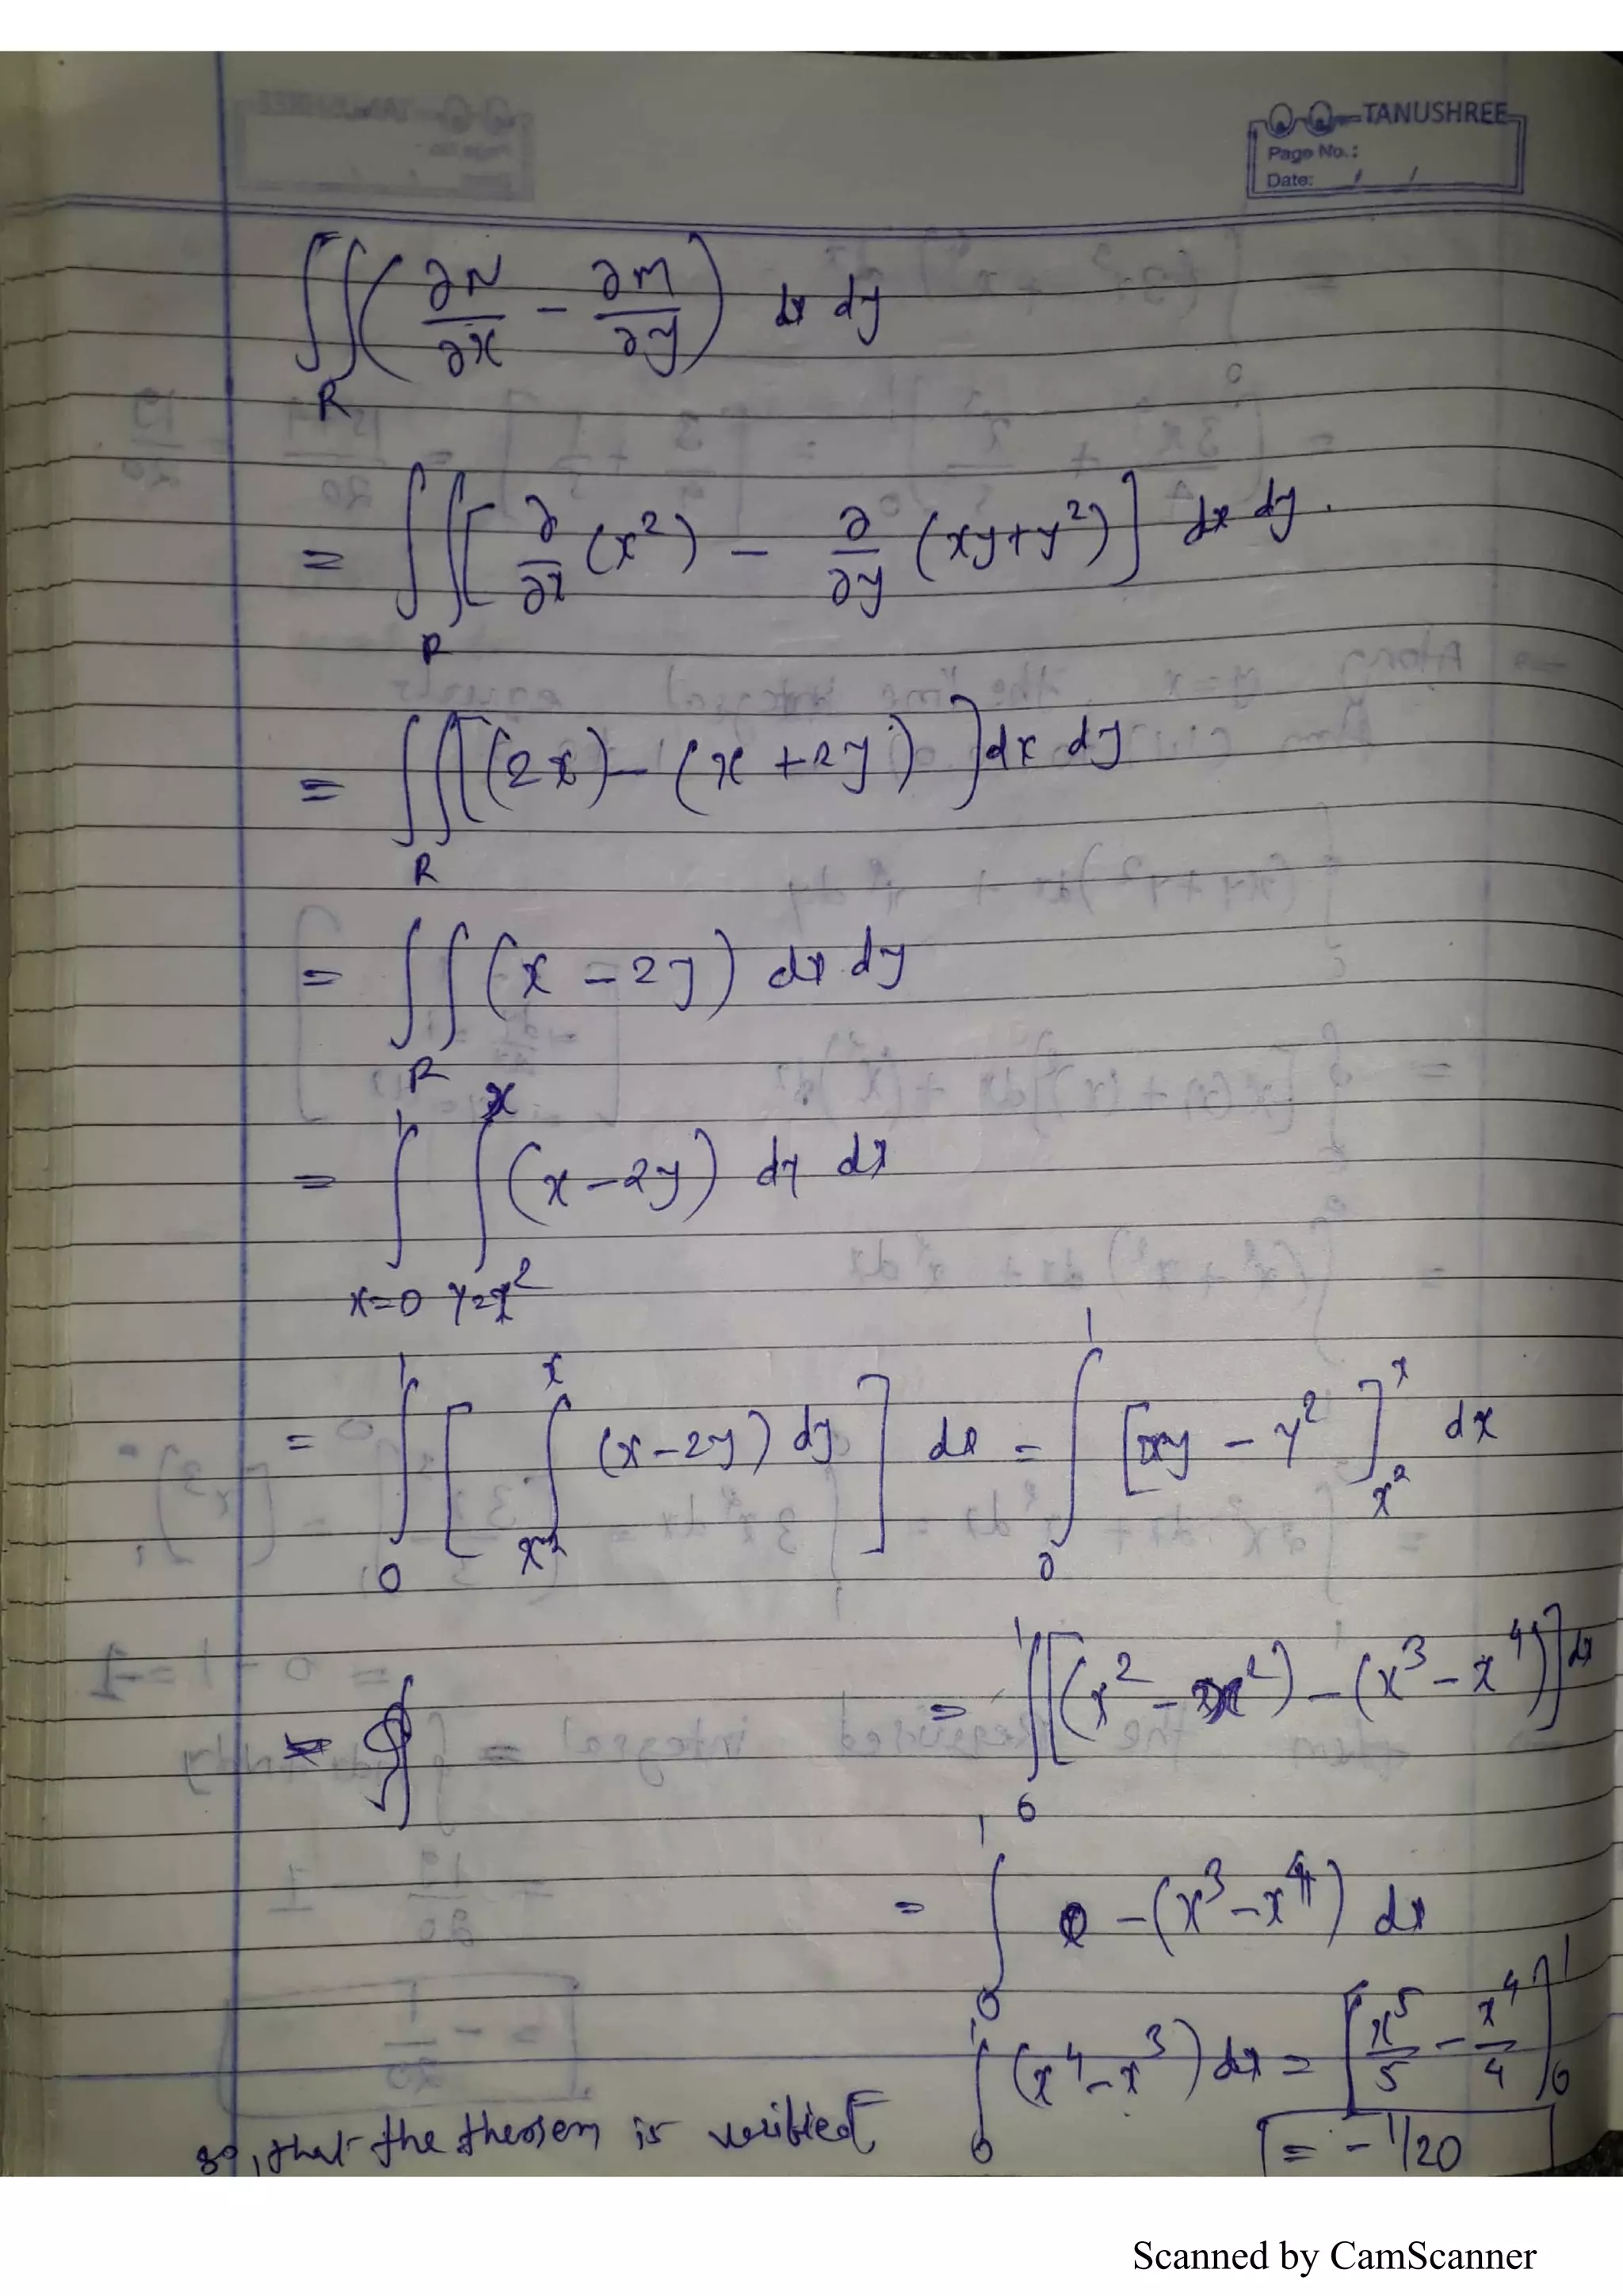 TANUSHREE
Page No.:
Date: / /
∬_R (∂N/∂x − ∂M/∂y) dx dy
= ∬_R [∂/∂x (x²) − ∂/∂y (xy+y²)] dx dy.
= ∬_R [(2x) − (x+2y)] dx dy
= ∬_R (x − 2y) dx dy
= ∫_{x=0}^{1} ∫_{y=x²}^{x} (x−2y) dy dx
= ∫_0^1 [∫_{x²}^{x} (x−2y) dy] dx = ∫_0^1 [xy − y²]_{x²}^{x} dx
= ∫_0^1 [(x² − x²) − (x³ − x⁴)] dx
= ∫_0^1 0 − (x³ − x⁴) dx
∫_0^1 (x⁴ − x³) dx = [x⁵/5 − x⁴/4]_0^1
so, that the theorem is verified
= −1/20
Scanned by CamScanner